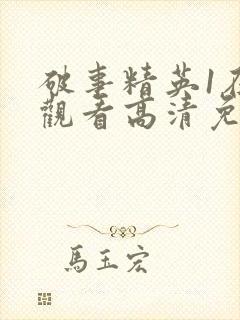 破事精英1
觀看高清免
馬玉宏